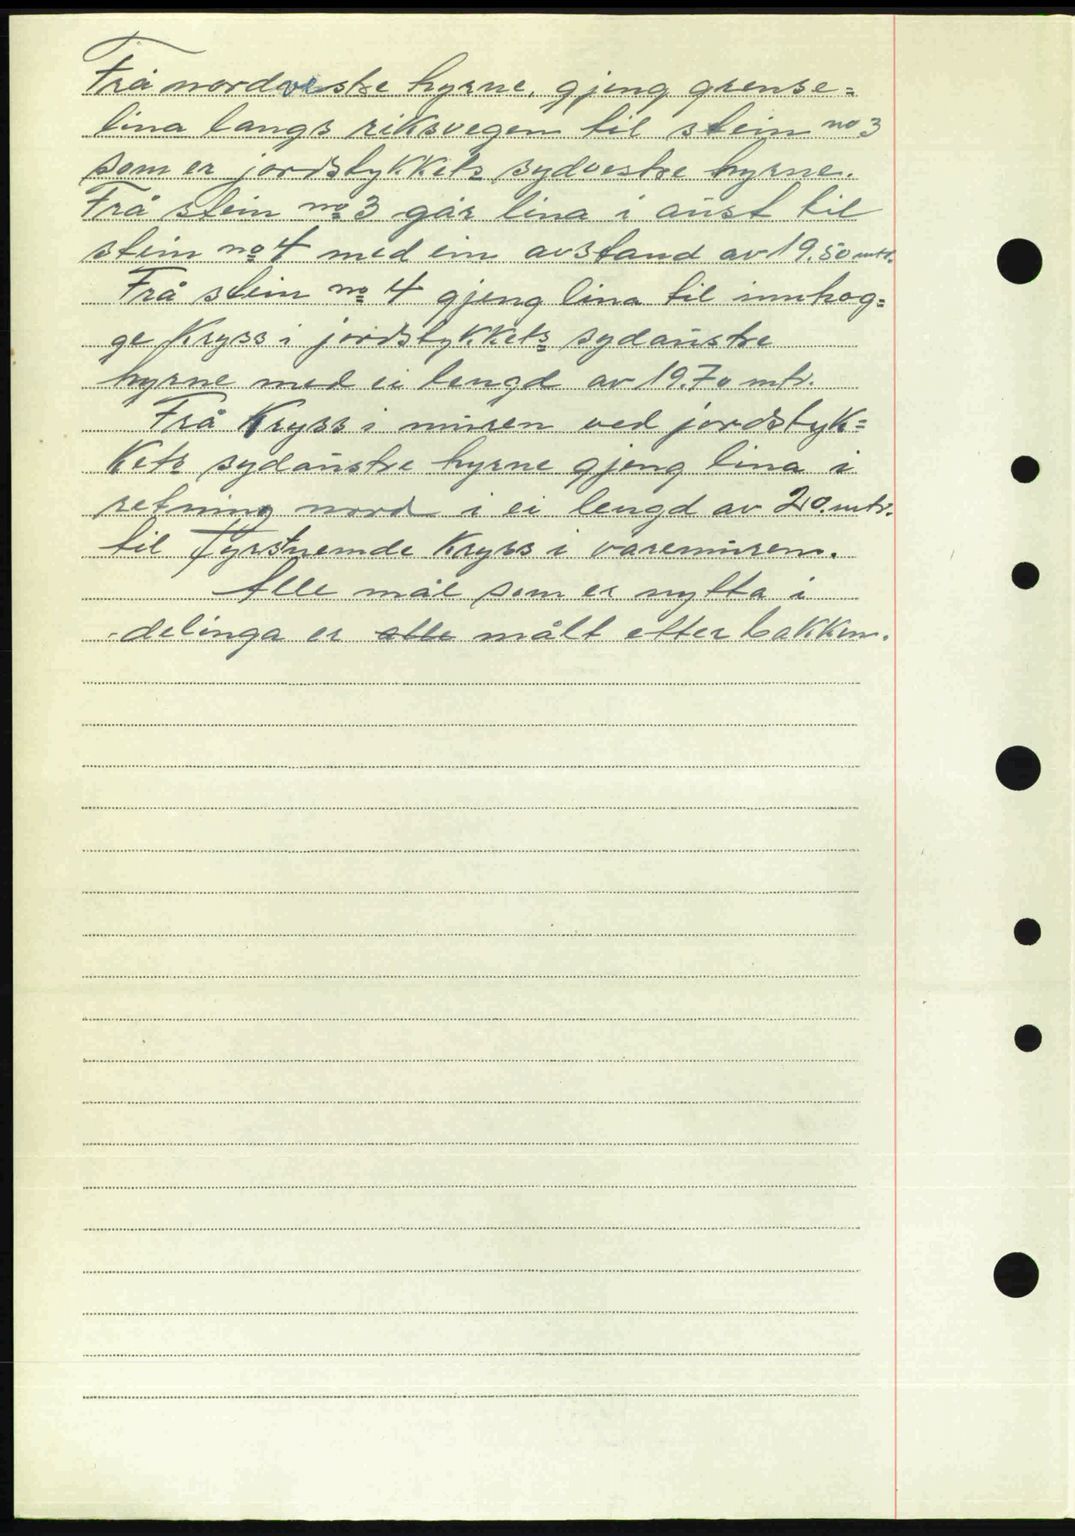 Frå nordvestre hyrne, gjeng grense=
lina langs riksvegen til stein no 3
som er jordstykkets sydvestre hyrne.
Frå stein no 3 går lina i aust til
stein no 4 med ein avstand av 19,50 mtr.
Frå stein no 4 gjeng lina til innhog=
ge Kryss i jordstykkets sydaustre
hyrne med ei lengd av 19.70 mtr.
Frå Kryss i muren ved jordstyk=
kets sydaustre hyrne gjeng lina i
retning nord i ei lengd av 20. mtr.
til fyrstnemde Kryss i varemuren.
Alle mål som er nytta i
delinga er alle målt etter bakken.